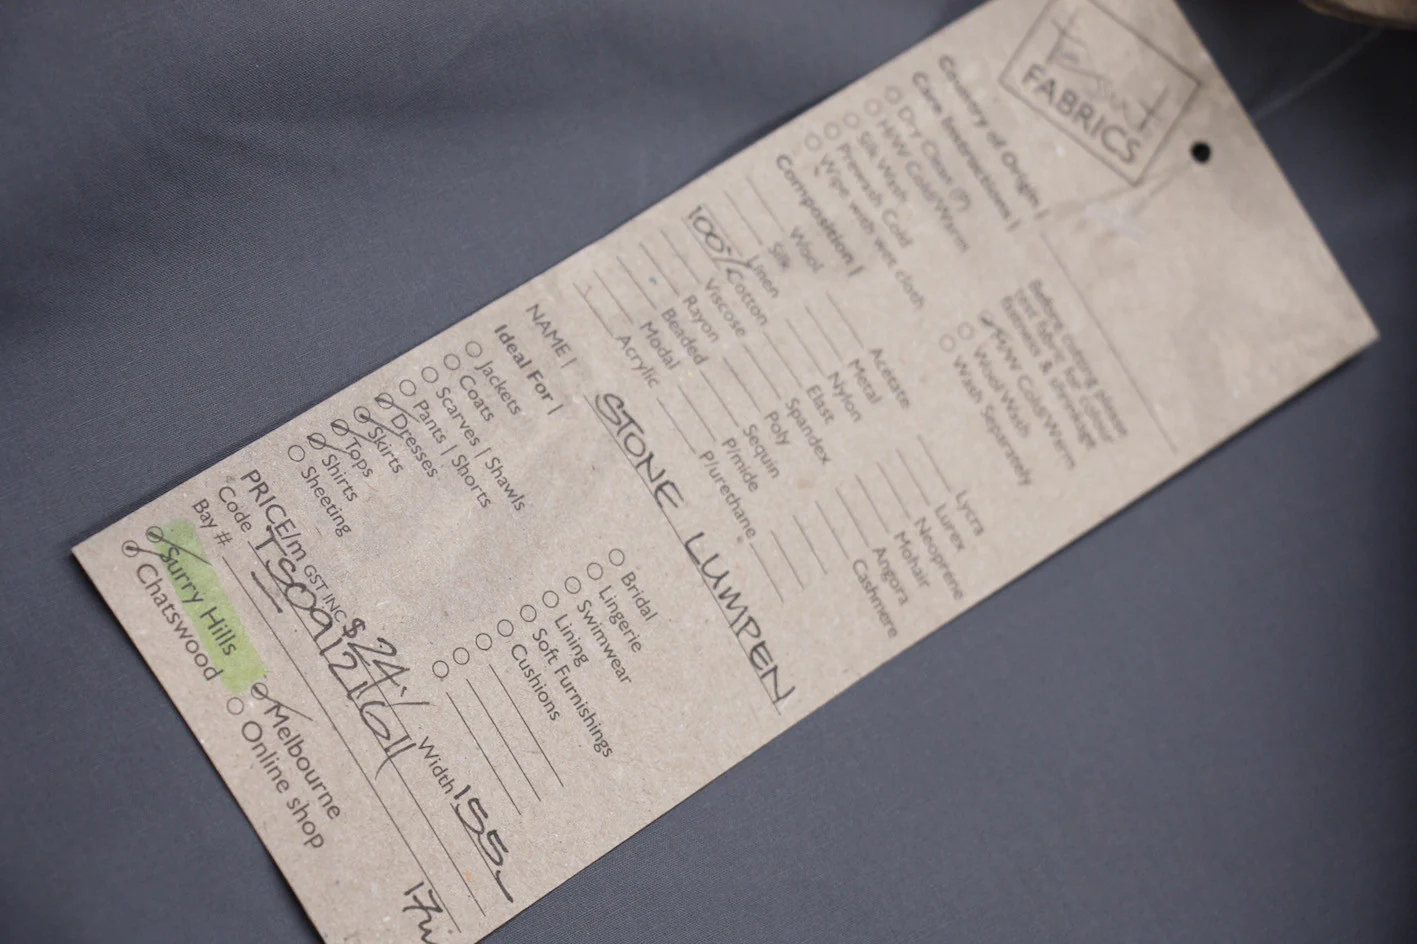 Tessuti
FABRICS
Country of Origin |
Care Instructions |
Before cutting please
test fabric for colour
fastness & shrinkage
Dry Clean (P)
H/W Cold/Warm
Silk Wash
Prewash Cold
Wipe with wet cloth
M/W Cold/Warm
Wool Wash
Wash Separately
Composition |
Wool
Silk
Linen
100% Cotton
Viscose
Rayon
Beaded
Modal
Acrylic
Acetate
Metal
Nylon
Elast
Spandex
Poly
Sequin
P/mide
P/urethane
Lycra
Lurex
Neoprene
Mohair
Angora
Cashmere
NAME | STONE LUMPEN
Ideal For |
Jackets
Coats
Scarves | Shawls
Pants | Shorts
Dresses
Skirts
Tops
Shirts
Sheeting
Bridal
Lingerie
Swimwear
Lining
Soft Furnishings
Cushions
PRICE/m GST INC $24 Width 155
Code TS0912 1611
Bay #
Surry Hills
Chatswood
Melbourne
Online shop